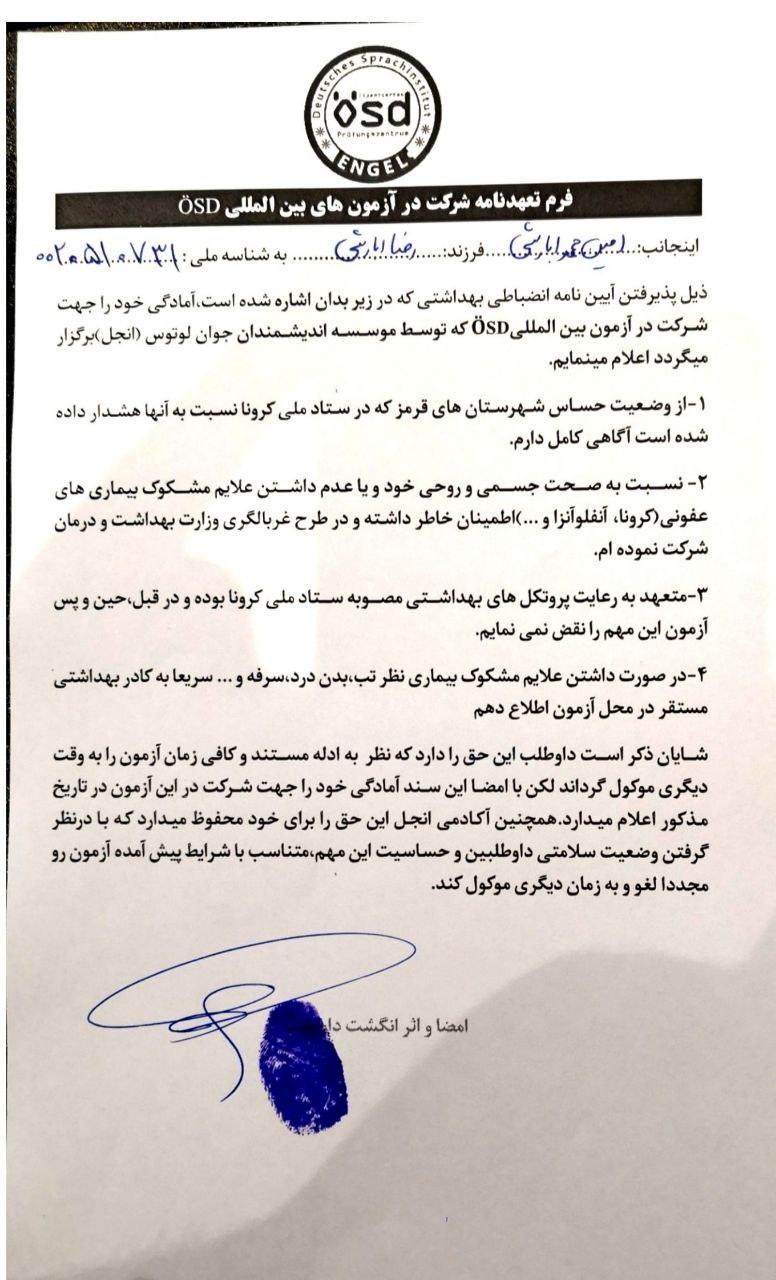 Deutsches Sprachinstitut
ösd
Prüfungszentrum
ENGEL
فرم تعهدنامه شرکت در آزمون های بین المللی ÖSD
اینجانب:............ فرزند:.....رضا........ به شناسه ملی :
ذیل پذیرفتن آیین نامه انضباطی بهداشتی که در زیر بدان اشاره شده است،آمادگی خود را جهت
شرکت در آزمون بین المللیÖSD که توسط موسسه اندیشمندان جوان لوتوس (انجل)برگزار
میگردد اعلام مینمایم.
۱-از وضعیت حساس شهرستان های قرمز که در ستاد ملی کرونا نسبت به آنها هشدار داده
شده است آگاهی کامل دارم.
۲- نسبت به صحت جسمی و روحی خود و یا عدم داشتن علایم مشکوک بیماری های
عفونی(کرونا، آنفلوآنزا و ...)اطمینان خاطر داشته و در طرح غربالگری وزارت بهداشت و درمان
شرکت نموده ام.
۳-متعهد به رعایت پروتکل های بهداشتی مصوبه ستاد ملی کرونا بوده و در قبل،حین و پس
آزمون این مهم را نقض نمی نمایم.
۴-در صورت داشتن علایم مشکوک بیماری نظر تب،بدن درد،سرفه و ... سریعا به کادر بهداشتی
مستقر در محل آزمون اطلاع دهم
شایان ذکر است داوطلب این حق را دارد که نظر به ادله مستند و کافی زمان آزمون را به وقت
دیگری موکول گرداند لکن با امضا این سند آمادگی خود را جهت شرکت در این آزمون در تاریخ
مذکور اعلام میدارد.همچنین آکادمی انجل این حق را برای خود محفوظ میدارد که با درنظر
گرفتن وضعیت سلامتی داوطلبین و حساسیت این مهم،متناسب با شرایط پیش آمده آزمون رو
مجددا لغو و به زمان دیگری موکول کند.
امضا و اثر انگشت